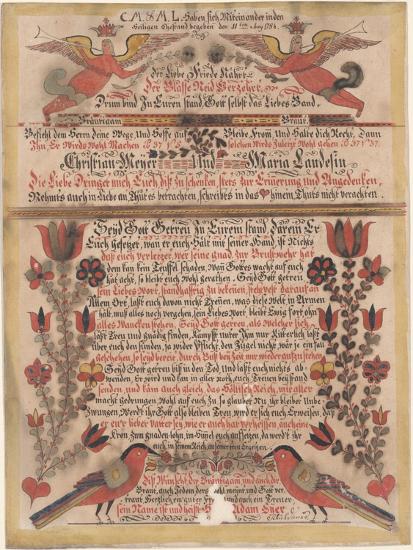 C. M. & M. L. Haben sich Miteinander in den
Heiligen Ehestand begeben den 11ten May 1784
Der Liebe Friede Nähre
Der Blasse Neid Verzehre
Drum bind zu Euren stand Gott selbst das Liebes Band.
Bräutigam Braut
Befiehl dem Herrn deine Wege, Und Hoffe auf
Ihn Er Wirds Wohl Machen Ps 37 V 5
Bleibe From, und Halte dich Recht, Dann
solchen Wirds Zuletzt Wohl gehen Ps 37 V 37.
Christian Meyer Und Maria Landesin
Die Liebe Dringet mich Euch diß zu schenken, stets zur Erinerung Und Angedencken,
Nehmts auch in Liebe an Thuts es verachten, schreibts in das hinein Thuts nicht verachten
Seyd Gott Getreu zu Eurem stand darein Er
Euch gesetzet, wan er euch Hält mit seiner Hand ist Nichts
daß euch verletzet, wer seine gnad zur Brustwehr hat
dem kan kein Teuffel schaden, Wo Gottes wacht auf euch
hat acht, so bleibt euch wohl gerathen. Seyd Gott getreu
sein Liebes Wort, standhafftig zu bekennen, steht fest darauf an
Allem Ort, laßt euch davon nicht Trennen, was diese Welt in Armen
hält, muß alles noch vergehen, sein Liebes Wort bleibt Ewig fort ohn
alles Wancken stehen. Seyd Gott getreu, als welcher sich
läßt Treu und gnädig finden, Kämpft unter Ihm nur Ritterlich laßt
über euch den sünden, ja wider Pflicht, den Zügel nicht, wär je ein fall
Geschehen, so seyd bereit, durch Buß bey Zeit nur wieder aufzustehen
Seyd Gott getreu bis in den Tod Und laßt euch nichts ab-
wenden, Er wird und kan in aller noth, euch Treuen beystand
senden, und käm auch gleich das Höllisch Reich, mit aller
macht gedrungen, Wolt auf euch Zu so glaubet Nu ihr bleibet Unbe-
zwungen, Werdt ihr Gott also bleiben Treu, wird er sich euch Erweisen, daß
er eur lieber Vatter sey, wie er auch hat verheissen, euch eine
Cron zum gnaden lohn, im Himel euch aufsetzen, da werdt ihr
euch, in seinem Reich,
Diß Wünscht der Bräutigam, und auch der
Braut, auch Jedem
sein Name ist und heist Adam